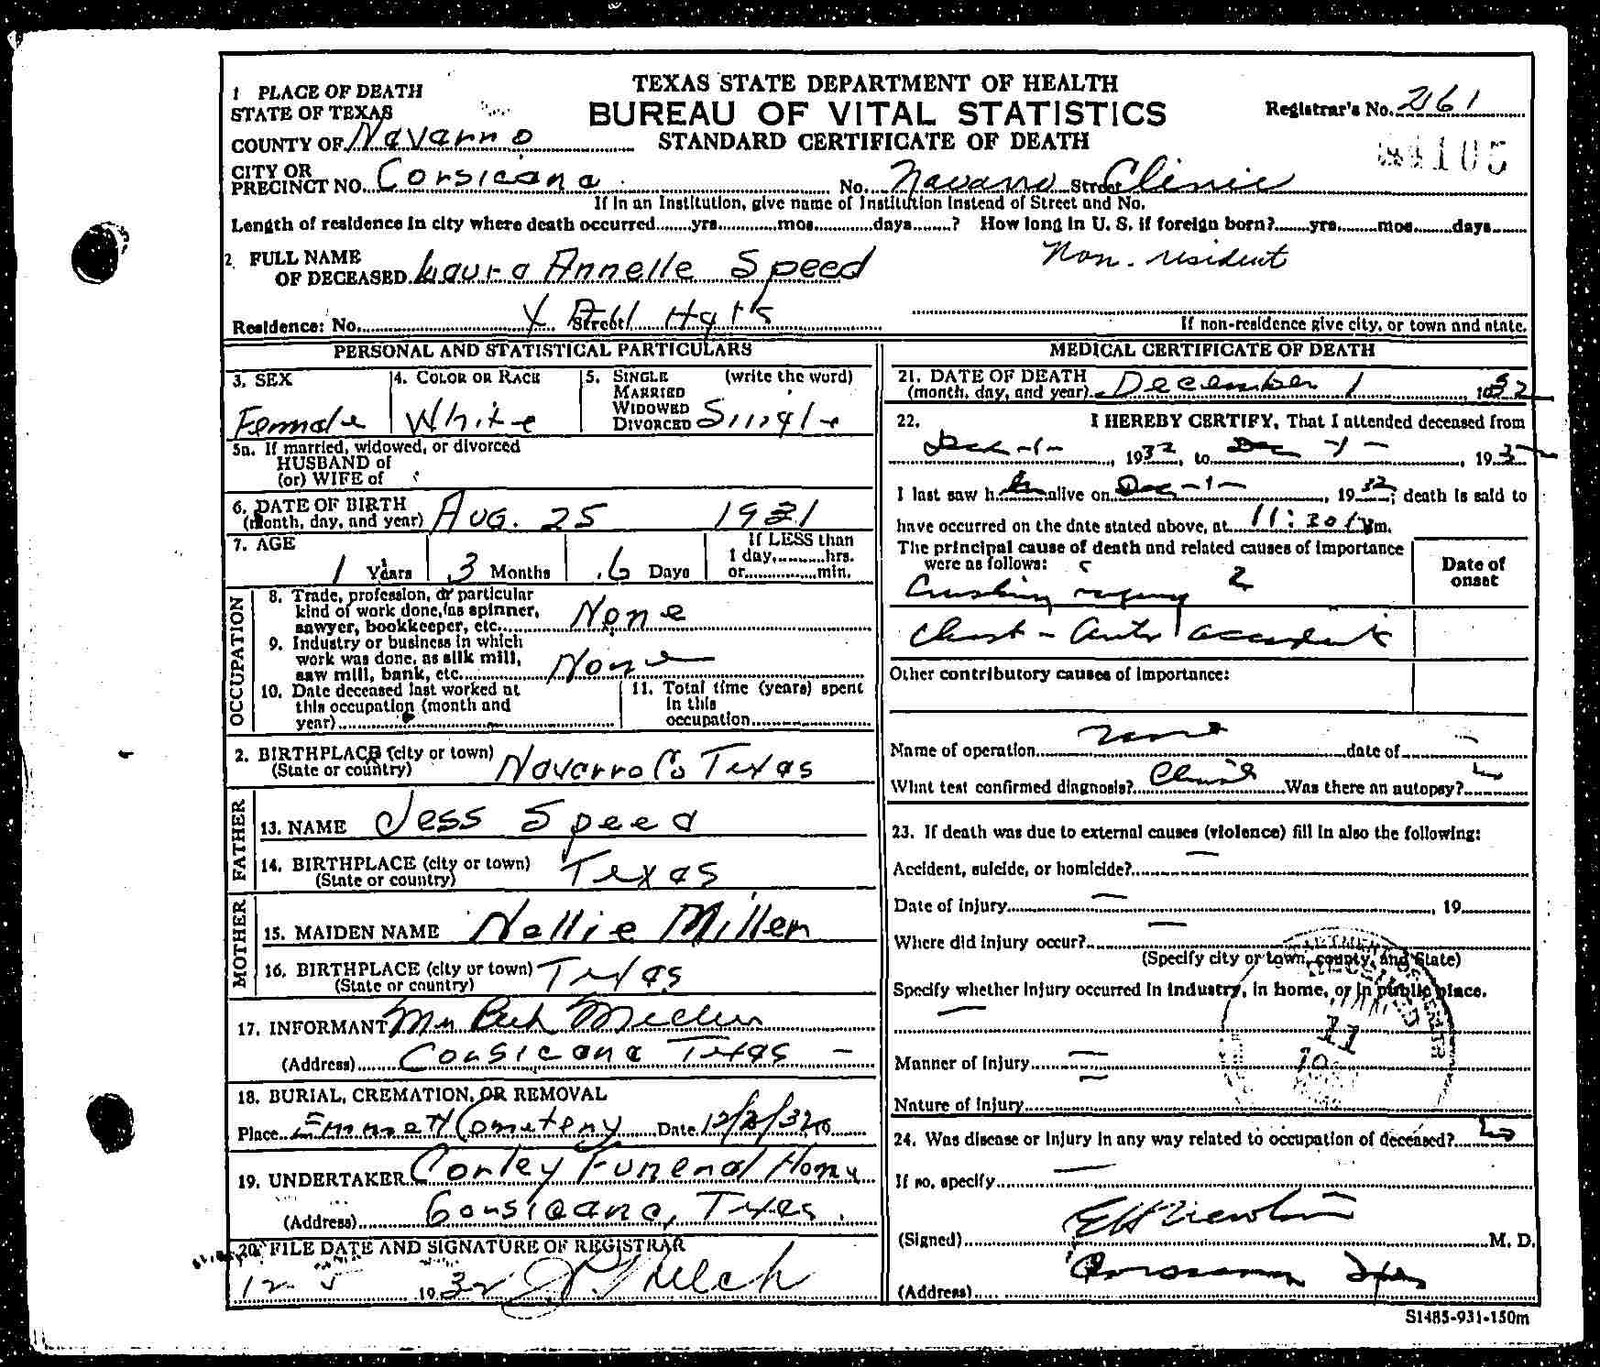 TEXAS STATE DEPARTMENT OF HEALTH
BUREAU OF VITAL STATISTICS
STANDARD CERTIFICATE OF DEATH
Registrar's No. 2161
1 PLACE OF DEATH
STATE OF TEXAS
COUNTY OF Navarro
CITY OR
PRECINCT NO. Corsicana No. Navarro Street Clinic
If in an Institution, give name of Institution instead of Street and No.
Length of residence in city where death occurred yrs. mos. days ? How long in U. S. if foreign born? yrs. mos. days
2 FULL NAME
OF DECEASED Laura Annelle Speed Non-resident
Residence: No. Street Hgts
If non-residence give city, or town and state.
PERSONAL AND STATISTICAL PARTICULARS
3. SEX 4. COLOR OR RACE 5. SINGLE (write the word)
MARRIED
WIDOWED
DIVORCED
Female White Single
5a. If married, widowed, or divorced
HUSBAND of
(or) WIFE of
6. DATE OF BIRTH
(month, day, and year) Aug. 25 1931
7. AGE If LESS than
1 day, hrs.
1 Years 3 Months 6 Days or min.
OCCUPATION
8. Trade, profession, or particular
kind of work done, as spinner,
sawyer, bookkeeper, etc. None
9. Industry or business in which
work was done, as silk mill,
saw mill, bank, etc. None
10. Date deceased last worked at
this occupation (month and
year)
11. Total time (years) spent
in this
occupation
2. BIRTHPLACE (city or town)
(State or country) Navarro Co Texas
FATHER
13. NAME Jess Speed
14. BIRTHPLACE (city or town)
(State or country) Texas
MOTHER
15. MAIDEN NAME Nellie Miller
16. BIRTHPLACE (city or town)
(State or country) Texas
17. INFORMANT Miller
(Address) Corsicana Texas -
18. BURIAL, CREMATION, OR REMOVAL
Place Emmett Cemetery Date 12/2/32
19. UNDERTAKER Corley Funeral Home
(Address) Corsicana, Texas.
20. FILE DATE AND SIGNATURE OF REGISTRAR
12-5 1932
MEDICAL CERTIFICATE OF DEATH
21. DATE OF DEATH
(month, day, and year) December 1 1932
22. I HEREBY CERTIFY, That I attended deceased from
Dec -1- , 1932, to Dec -1- , 1932
I last saw h alive on Dec -1- , 1932; death is said to
have occurred on the date stated above, at 11:30 m.
The principal cause of death and related causes of importance
were as follows:
Date of
onset
Crushing injury
Chest - Auto accident
Other contributory causes of importance:
Name of operation none date of -
What test confirmed diagnosis? Clinical Was there an autopsy? no
23. If death was due to external causes (violence) fill in also the following:
Accident, suicide, or homicide? —
Date of injury — , 19
Where did injury occur? —
(Specify city or town, county, and State)
Specify whether injury occurred in industry, in home, or in public place.
—
Manner of injury —
Nature of injury —
11
24. Was disease or injury in any way related to occupation of deceased? no
If so, specify —
(Signed) E H Newton M. D.
(Address) Corsicana Texas
S1485-931-150m